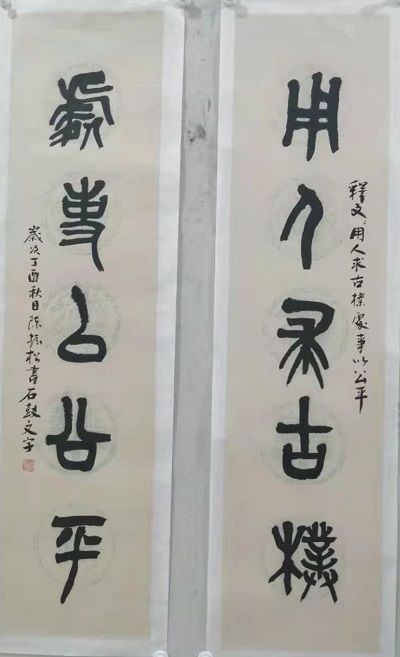 用人求古樸
釋文：用人求古樸處事以公平
處事以公平
歲次丁酉秋日陳振松書石鼓文字